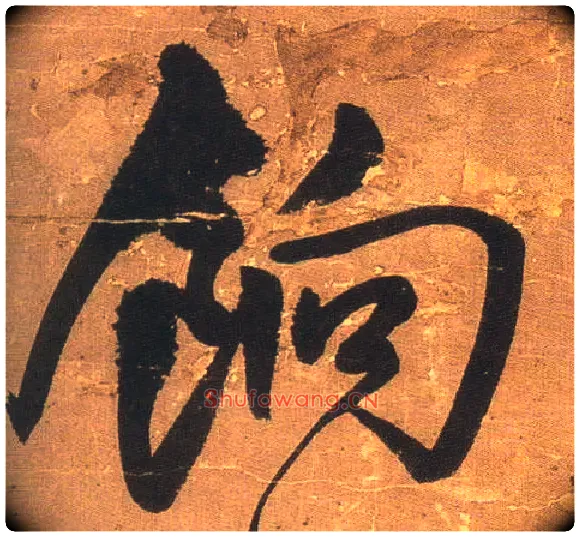 餉
Shufawang.CN